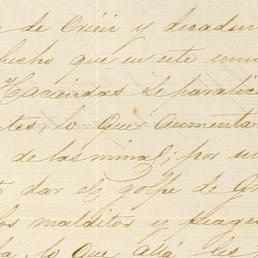 de Oriri y decaden
hecho que en este inm
Haciendas se paralic
tes, lo que aumenta
de las minas; por un
dar el golpe de Gr
los malditos y plages
lo que allá les